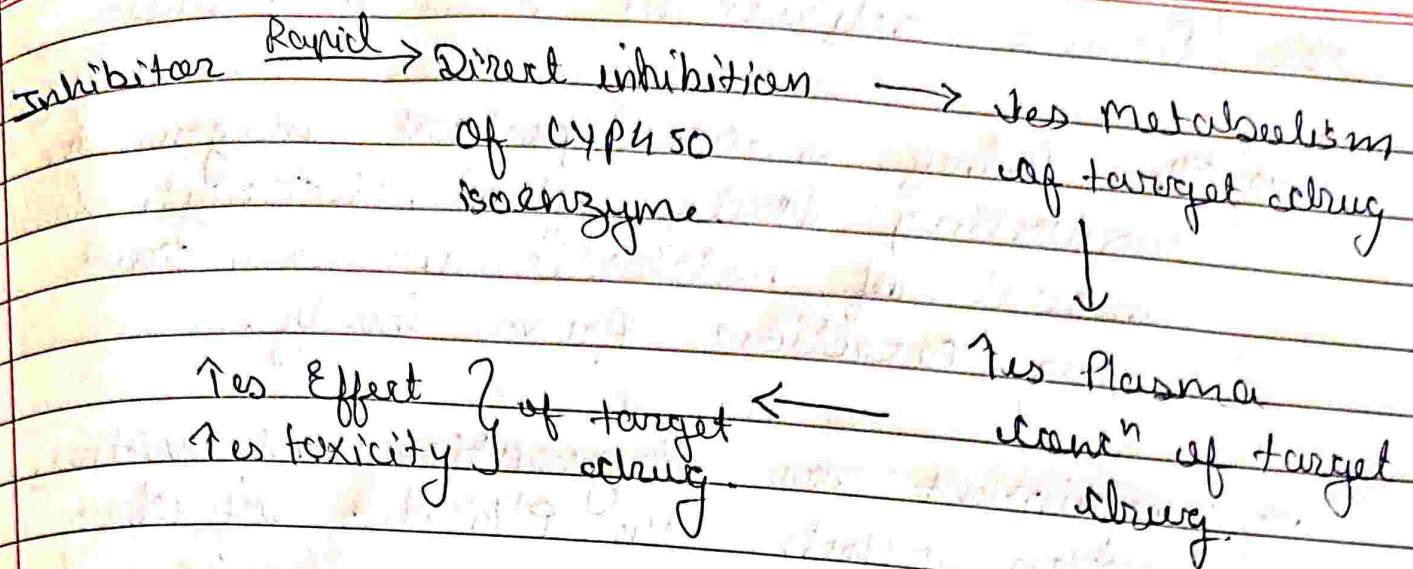 Inhibitor Rapid → Direct inhibition
of CYP450
isoenzyme.
→ ↓es Metabolism
of target drug
↓
↑es Plasma
concⁿ of target
drug.
←
↑es Effect } of target
↑es toxicity } drug.